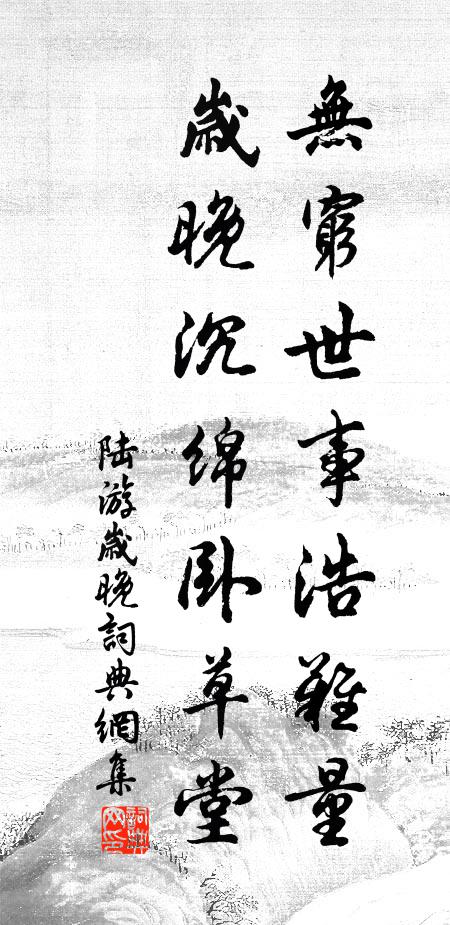 無窮世事浩難量
歲晚沉绵卧草堂
陆游歲晚詞典網集